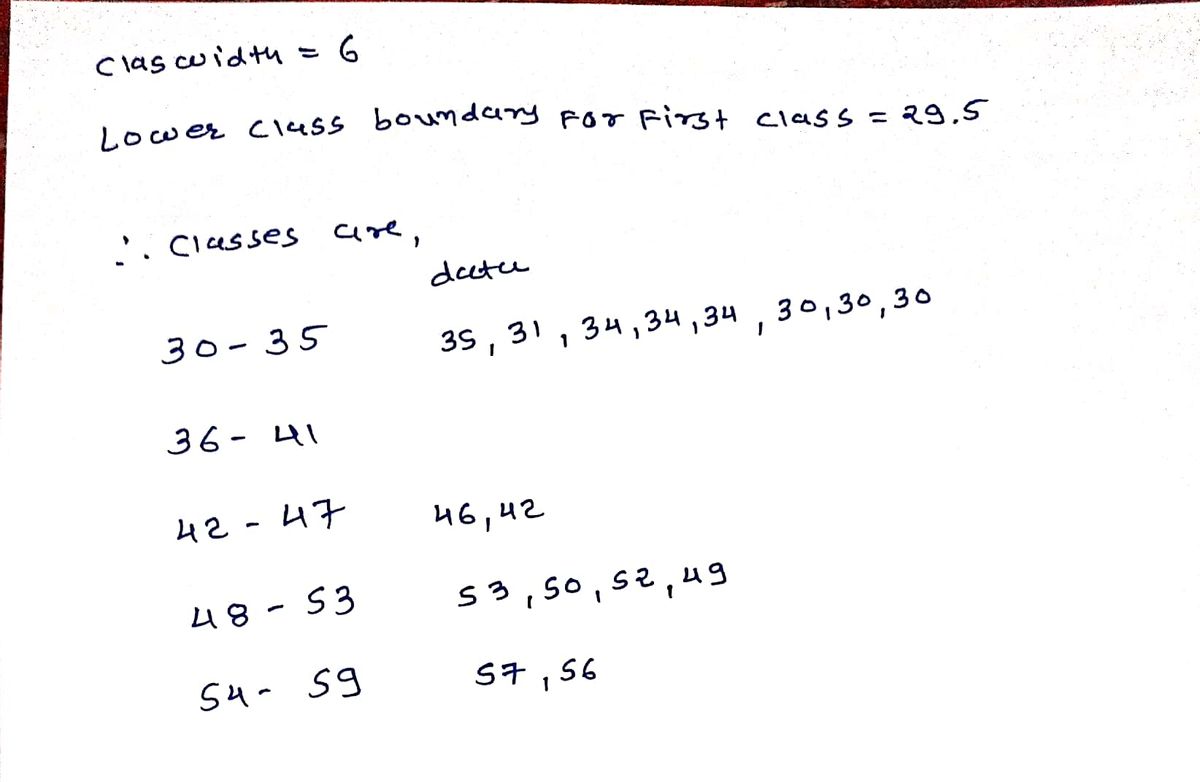 Clas width = 6
Lower Class boundary For First class = 29.5
∴ Classes are,
data
30 - 35 35, 31, 34, 34, 34, 30, 30, 30
36 - 41
42 - 47 46, 42
48 - 53 53, 50, 52, 49
54 - 59 57, 56